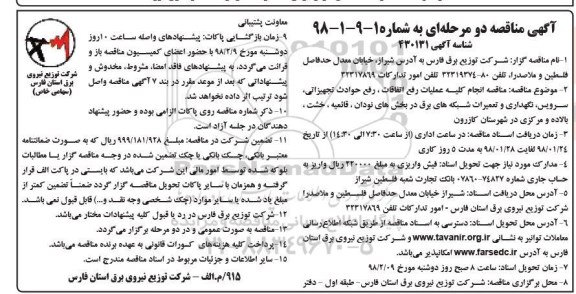 آگهی مناقصه دو مرحله‌ای به شماره ۱-۹-۱-۹۸
شناسه آگهی ۴۳۰۱۳۱
۱-نام مناقصه گزار: شرکت توزیع برق فارس به آدرس شیراز، خیابان معدل حدفاصل
فلسطین و ملاصدرا، تلفن ۸۰-۳۲۳۱۹۳۷۴ تلفن امور تدارکات ۳۲۳۱۷۸۶۹
۲- موضوع مناقصه: مناقصه انجام کلیه عملیات رفع اتفاقات ، رفع حوادث تجهیزاتی،
سرویس، نگهداری و تعمیرات شبکه های برق در بخش های نودان ، قائمیه ، خشت ،
بالاده و مرکزی در شهرستان کازرون
۳- زمان دریافت اسناد مناقصه: در ساعت اداری (از ساعت ۷:۳۰ الی ۱۴:۳۰) از تاریخ
۹۸/۰۱/۲۴ لغایت ۹۸/۰۱/۲۸ به مدت ۵ روز کاری
۴- مدارک مورد نیاز جهت تحویل اسناد: فیش واریزی به مبلغ ۲۲۰۰۰۰ ریال واریز به
حساب جاری شماره ۰۷۸۶۰۰۷۴۸۲۷ بانک تجارت شعبه فلسطین شیراز
۵- محل دریافت اسناد: شیراز خیابان معدل حدفاصل فلسطین و ملاصدرا
شرکت توزیع نیروی برق استان فارس - امور تدارکات تلفن ۳۲۳۱۷۸۶۹
۶- محل تحویل اسناد: دسترسی به اسناد مناقصه از طریق شبکه اطلاع‌رسانی
معاملات توانیر به نشانی www.tavanir.org.ir و شرکت توزیع نیروی برق استان
فارس به آدرس www.farsedc.ir امکانپذیر می‌باشد.
۷- زمان تحویل اسناد: ساعت ۸ صبح روز دوشنبه مورخ ۹۸/۲/۰۹
۸- محل برگزاری مناقصه: شرکت توزیع نیروی برق استان فارس- طبقه اول - دفتر
معاونت پشتیبانی
۹-زمان بازگشایی پاکات: پیشنهادهای واصله ساعت ۱۰روز
دوشنبه مورخ ۹۸/۲/۹ با حضور اعضای کمیسیون مناقصه باز و
قرائت می‌گردد، به پیشنهادهای فاقد امضا، مشروط، مخدوش و
پیشنهاداتی که بعد از موعد مقرر در بند ۷ آگهی مناقصه واصل
شود ترتیب اثر داده نخواهد شد.
۱۰-ذکر شماره مناقصه روی پاکات الزامی بوده و حضور پیشنهاد
دهندگان در جلسه آزاد است.
۱۱- تضمین شرکت در مناقصه: مبلغ ۹۹۹/۱۸۱/۹۲۸ ریال که به صورت ضمانتنامه
معتبر بانکی، چک بانکی یا چک تضمین شده در وجه مناقصه گزار یا مطالبات
بلوکه شده توسط امور مالی این شرکت می‌باشد که بایستی در پاکت الف قرار
گرفته و همزمان با سایر پاکات تحویل مناقصه گزار گردد ضمناً تضمین کمتر از
مبلغ یاد شده یا سایر موارد (چک شخصی وجه نقد و...) قابل قبول نمی باشد.
۱۲- شرکت توزیع برق فارس در رد یا قبول کلیه پیشنهادات مختار می‌باشد.
۱۳-مناقصه به صورت عمومی و در دو مرحله برگزار می‌گردد.
۱۴-پرداخت کلیه هزینه‌های کسورات قانونی به عهده برنده مناقصه می‌باشد.
۱۵- سایر اطلاعات و جزئیات مربوط در اسناد مناقصه مندرج است.
۹۱۵/م.الف - شرکت توزیع نیروی برق استان فارس
شرکت توزیع نیروی
برق استان فارس
(سهامی خاص)